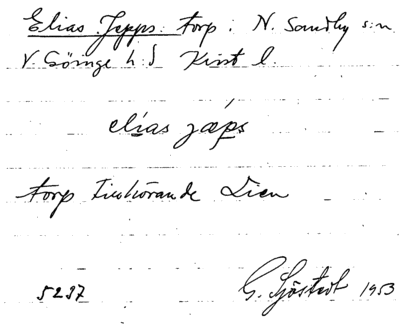 Elias Jepps torp: N. Sandby s:n
V. Göinge h:d Krist l.
elías jæps
torp tillhörande Lien
5237 G. Sjöstedt 1953